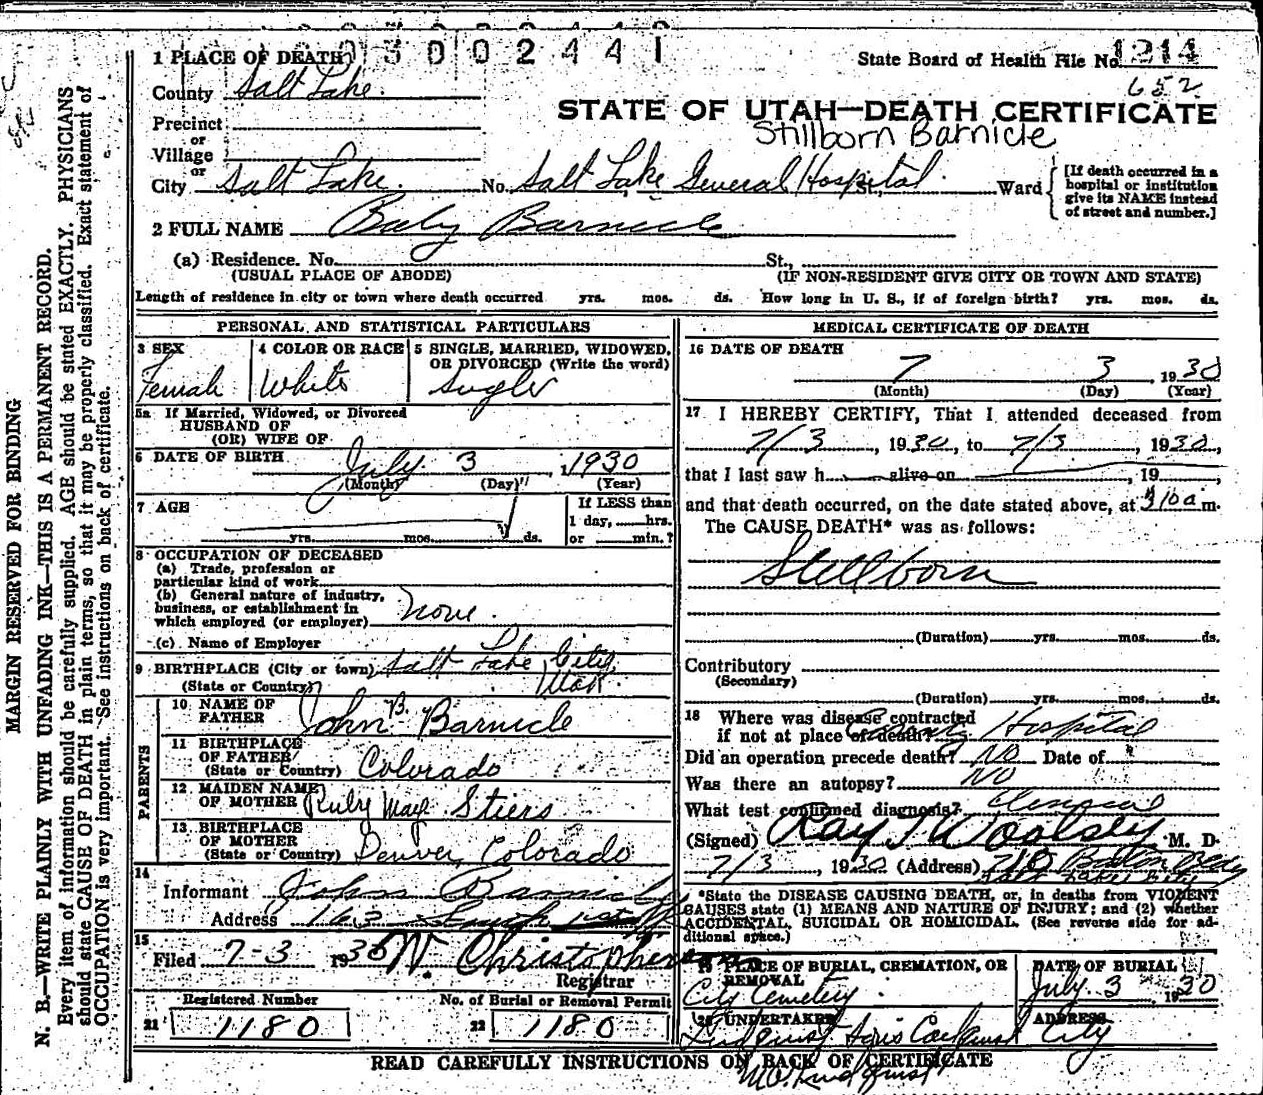 0300 2441
1 PLACE OF DEATH
State Board of Health File No. 1214
652
County Salt Lake.
STATE OF UTAH—DEATH CERTIFICATE
Stillborn Barnicle
Precinct
or
Village
or
City Salt Lake. No. Salt Lake General Hospital St., Ward
[If death occurred in a
hospital or institution
give its NAME instead
of street and number.]
2 FULL NAME Baby Barnicle
(a) Residence. No. St.,
(USUAL PLACE OF ABODE) (IF NON-RESIDENT GIVE CITY OR TOWN AND STATE)
Length of residence in city or town where death occurred yrs. mos. ds. How long in U. S., if of foreign birth? yrs. mos. ds.
PERSONAL AND STATISTICAL PARTICULARS
3 SEX
Female
4 COLOR OR RACE
White
5 SINGLE, MARRIED, WIDOWED,
OR DIVORCED (Write the word)
Single
5a If Married, Widowed, or Divorced
HUSBAND OF
(OR) WIFE OF
6 DATE OF BIRTH July 3, 1930
(Month) (Day) (Year)
7 AGE
yrs. mos. ds.
If LESS than
1 day, hrs.
or min.?
8 OCCUPATION OF DECEASED
(a) Trade, profession or
particular kind of work
(b) General nature of industry,
business, or establishment in
which employed (or employer) none.
(c) Name of Employer
9 BIRTHPLACE (City or town) Salt Lake City,
(State or Country) Utah
PARENTS
10 NAME OF
FATHER John B. Barnicle
11 BIRTHPLACE
OF FATHER
(State or Country) Colorado
12 MAIDEN NAME
OF MOTHER Ruby May Stiers
13 BIRTHPLACE
OF MOTHER
(State or Country) Denver, Colorado
14
Informant John Barnicle
Address 163
15
Filed 7-3 1930 W. Christophenson
Registrar
Registered Number
21 1180
No. of Burial or Removal Permit
22 1180
MEDICAL CERTIFICATE OF DEATH
16 DATE OF DEATH
7 3, 1930
(Month) (Day) (Year)
17 I HEREBY CERTIFY, That I attended deceased from
7/3, 1930, to 7/3, 1930,
that I last saw h alive on , 19
and that death occurred, on the date stated above, at m.
The CAUSE DEATH* was as follows:
Stillborn
(Duration) yrs. mos. ds.
Contributory
(Secondary)
(Duration) yrs. mos. ds.
18 Where was disease contracted
if not at place of death? County Hospital
Did an operation precede death? No Date of
Was there an autopsy? No
What test confirmed diagnosis?
(Signed) Ray T Woolsey M. D.
7/3, 1930 (Address) 710
Salt Lake City
*State the DISEASE CAUSING DEATH, or, in deaths from VIOLENT
CAUSES state (1) MEANS AND NATURE OF INJURY; and (2) whether
ACCIDENTAL, SUICIDAL OR HOMICIDAL. (See reverse side for ad-
ditional space.)
19 PLACE OF BURIAL, CREMATION, OR
REMOVAL
City Cemetery.
DATE OF BURIAL
July 3, 1930
20 UNDERTAKER
ADDRESS
City
READ CAREFULLY INSTRUCTIONS ON BACK OF CERTIFICATE
MARGIN RESERVED FOR BINDING
N. B.—WRITE PLAINLY WITH UNFADING INK—THIS IS A PERMANENT RECORD.
Every item of information should be carefully supplied. AGE should be stated EXACTLY. PHYSICIANS
should state CAUSE OF DEATH in plain terms, so that it may be properly classified. Exact statement of
OCCUPATION is very important. See instructions on back of certificate.